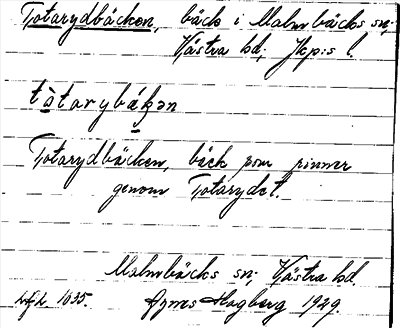 Totarydbäcken, bäck i Malmbäcks sn;
Västra hd; Jkp:s l.
tòtarybákən
Totarydbäcken, bäck som rinner
genom Totarydet.
Malmbäcks sn; Västra hd.
Agnes Hagberg 1929.